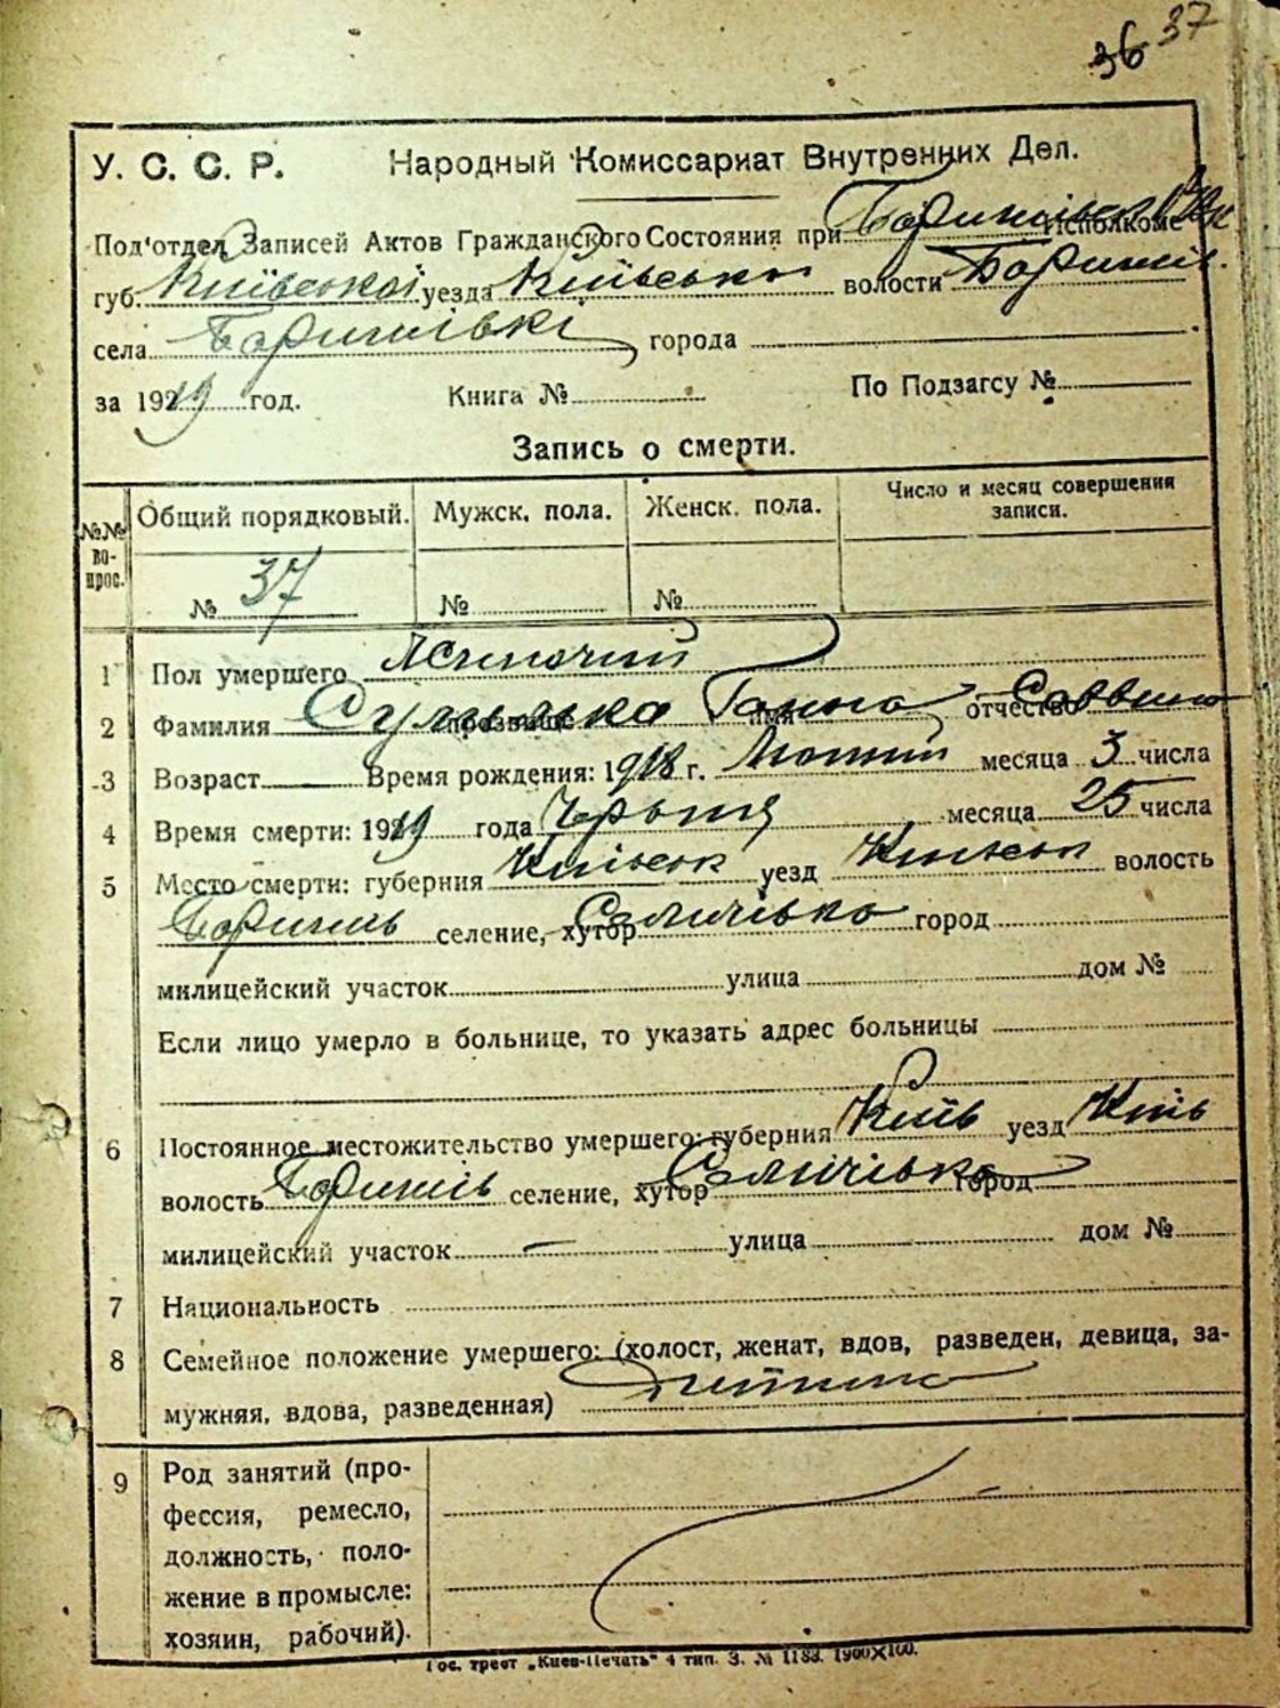 36 37
У. С. С. Р. Народный Комиссариат Внутренних Дел.
Под'отдел Записей Актов Гражданского Состояния при Исполкоме
губ. Київської уезда Київсько волости Баришів.
села Баришівкі города
за 1919 год. Книга № По Подзагсу №
Запись о смерти.
№№ вопрос. Общий порядковый. Мужск. пола. Женск. пола. Число и месяц совершения записи.
№ 37 № №
1 Пол умершего Жиночий
2 Фамилия прозвище Ганна имя отчество
3 Возраст Время рождения: 1918 г. Лютий месяца 3 числа
4 Время смерти: 1919 года Червня месяца 25 числа
5 Место смерти: губерния Київськ уезд Київськ волость
Баришів селение, хутор Селичівка город
милицейский участок улица дом №
Если лицо умерло в больнице, то указать адрес больницы
6 Постоянное местожительство умершего: губерния Київ уезд Київ
волость Баришів селение, хутор Селичівка город
милицейский участок — улица дом №
7 Национальность
8 Семейное положение умершего: (холост, женат, вдов, разведен, девица, за-
мужняя, вдова, разведенная) Дитина
9 Род занятий (про-
фессия, ремесло,
должность, поло-
жение в промысле:
хозяин, рабочий).
Гос. трест „Киев-Печать" 4 тип. З. № 1183. 1900×100.